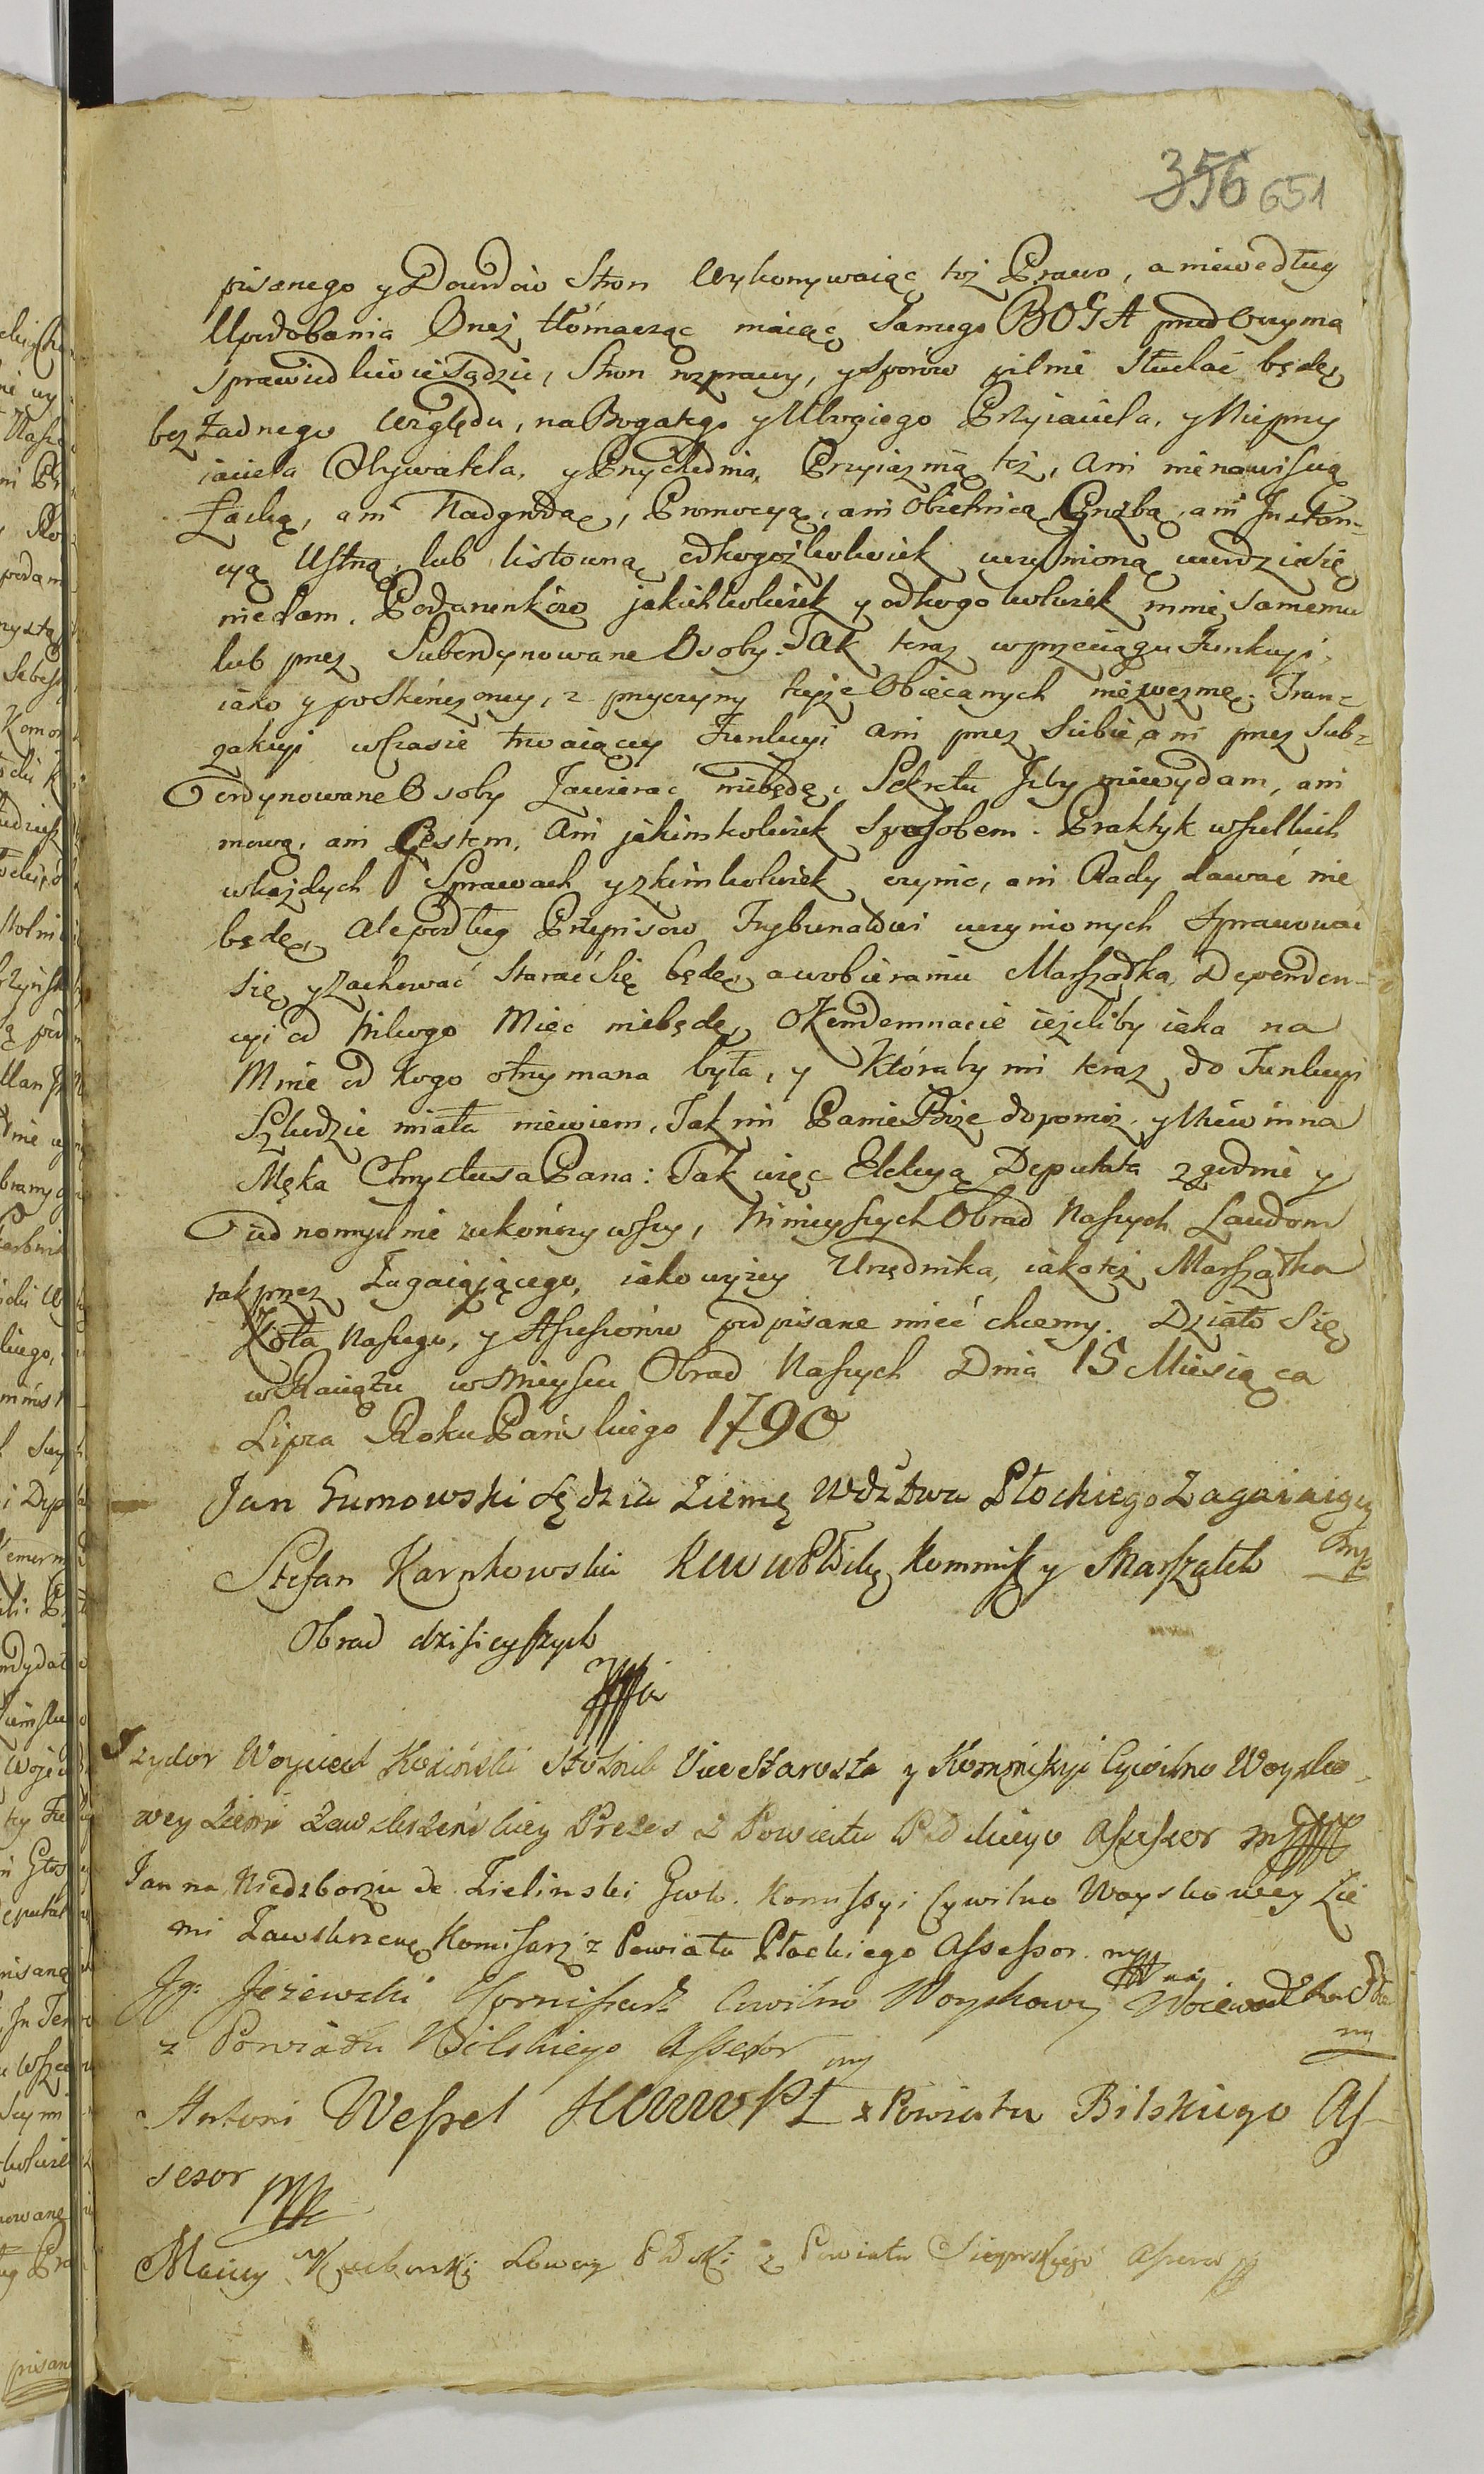 356 651
pisanego y Dowodów Stron Wykonywaiąc toż Prawo, a niewedług
Upodobania Onez tłómacząc maiąc Samego BOGA przed Oczyma
Sprawiedliwie Sądzić, Stron rozprawy, y sporów pilnie Słuchać będę
bez Żadnego względu, na Bogatego y Ubogiego Przyiaciela, y Nieprzy
iaciela Obywatela, y Przychodnia, Przyiaznią też, Ani nienawiścią
Łaską, ani Nadgrodą, Promocyą, ani Obietnicą Groźbą, ani Jnstan=
cyą Ustną, lub listowną odkogożkolwiek uczynioną uwodzić się
niedam. Podarunków jakichkolwiek y odkogokolwiek mnie samemu
lub przez Subordynowane Osoby Tak teraz wprzeciągu Funkcyi,
iako y poskończoney, z przyczyny teyże Obiecanych niewezmę. Tran=
zakcyi wczasie trwaiącey Funkcyi ani przez Siebie, ani przez Sub=
ordynowane Osoby Zawierać niebędę, Sekretu Jzby niewydam, ani
mową, ani Gestem, Ani jakimkolwiek Sposobem. Praktyk wszelkich
wkażdych Sprawach y zkimkolwiek czynic, ani Rady dawać nie
będę, Ale podług Przepisów Trybunałowi uczynionych Sprawować
się y zachować Starać Się będę, a wobieraniu Marszałka Dependen=
cyi od Nikogo Mieć niebędę, O Kondemnacie ieżeliby iaka na
Mnie od kogo otrzymana była, y Któraby mi teraz do Funkcyi
Szkodzić miała niewiem, Tak mi Panie Boże dopomóż, y Niewinna
Męka Chrystusa Pana: Tak więc Elekcyą Deputata zgodnie y
iednomyslnie zukończywszy, Ninieyszych Obrad Naszych Laudum
tak przez Zagaiającego, iako wyżey Urzędnika, iakoteż Marszałka
Koła Naszego, y Assessorów podpisane mieć chcemy. Działo Się
w Raciążu w Mieyscu Obrad Naszych Dnia 15 Miesiąca
Lipca Roku Pańskiego 1790
Jan Gumowski Sędzia Ziemę Wdztwa Płockiego Zagaiaiący
mp
Stefan Karpkowski Kommis y Marszałek
Obrad dzisieyszych
Jzydor Woyciech Koziński Stolnik Vice Starosta y Kommissyi Cywilno Woysko=
wey Ziemi Zawskrzeńskiey Prezes z Powiatu Assessor
Jan na Niedzborzu de Zielinski Komissyi Cywilno Woyskowey Zie
mi Zawskrzenę Komisarz z Powiatu Płockiego Assessor. mp
Jg: Jeżewski Komisarz Cwilno Woyskowy
z Powiatu Bilskiego Assesor
mp
Antoni Wessel z Powiatu Bilskiego As-
sesor
Maciey Łowczy z Powiatu Assesor